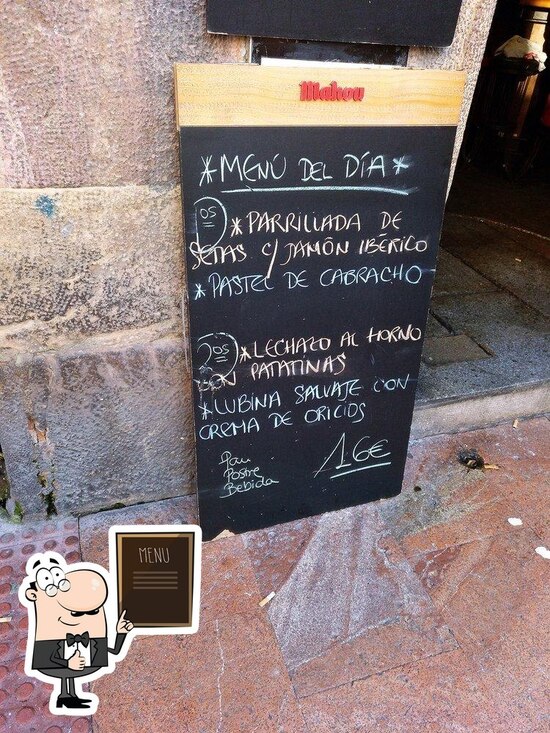 Mahou
*MENÚ DEL DÍA*
OS
*PARRILLADA DE
SETAS C/ JAMÓN IBÉRICO
*PASTEL DE CABRACHO
OS
*LECHAZO AL HORNO
CON PATATINAS
*LUBINA SALVAJE CON
CREMA DE ORICIOS
Pan
Postre
Bebida
16€
MENU